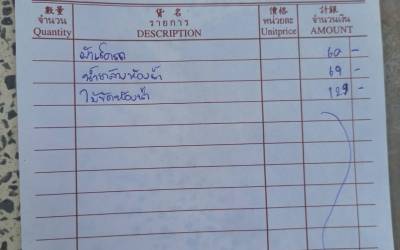 數量 貨名 價格 計銀
จำนวน รายการ หน่วยละ จำนวนเงิน
Quantity DESCRIPTION Unitprice AMOUNT
60 -
น้ำยาล้างห้องน้ำ 69 -
ไม้ขัดห้องน้ำ 129 -